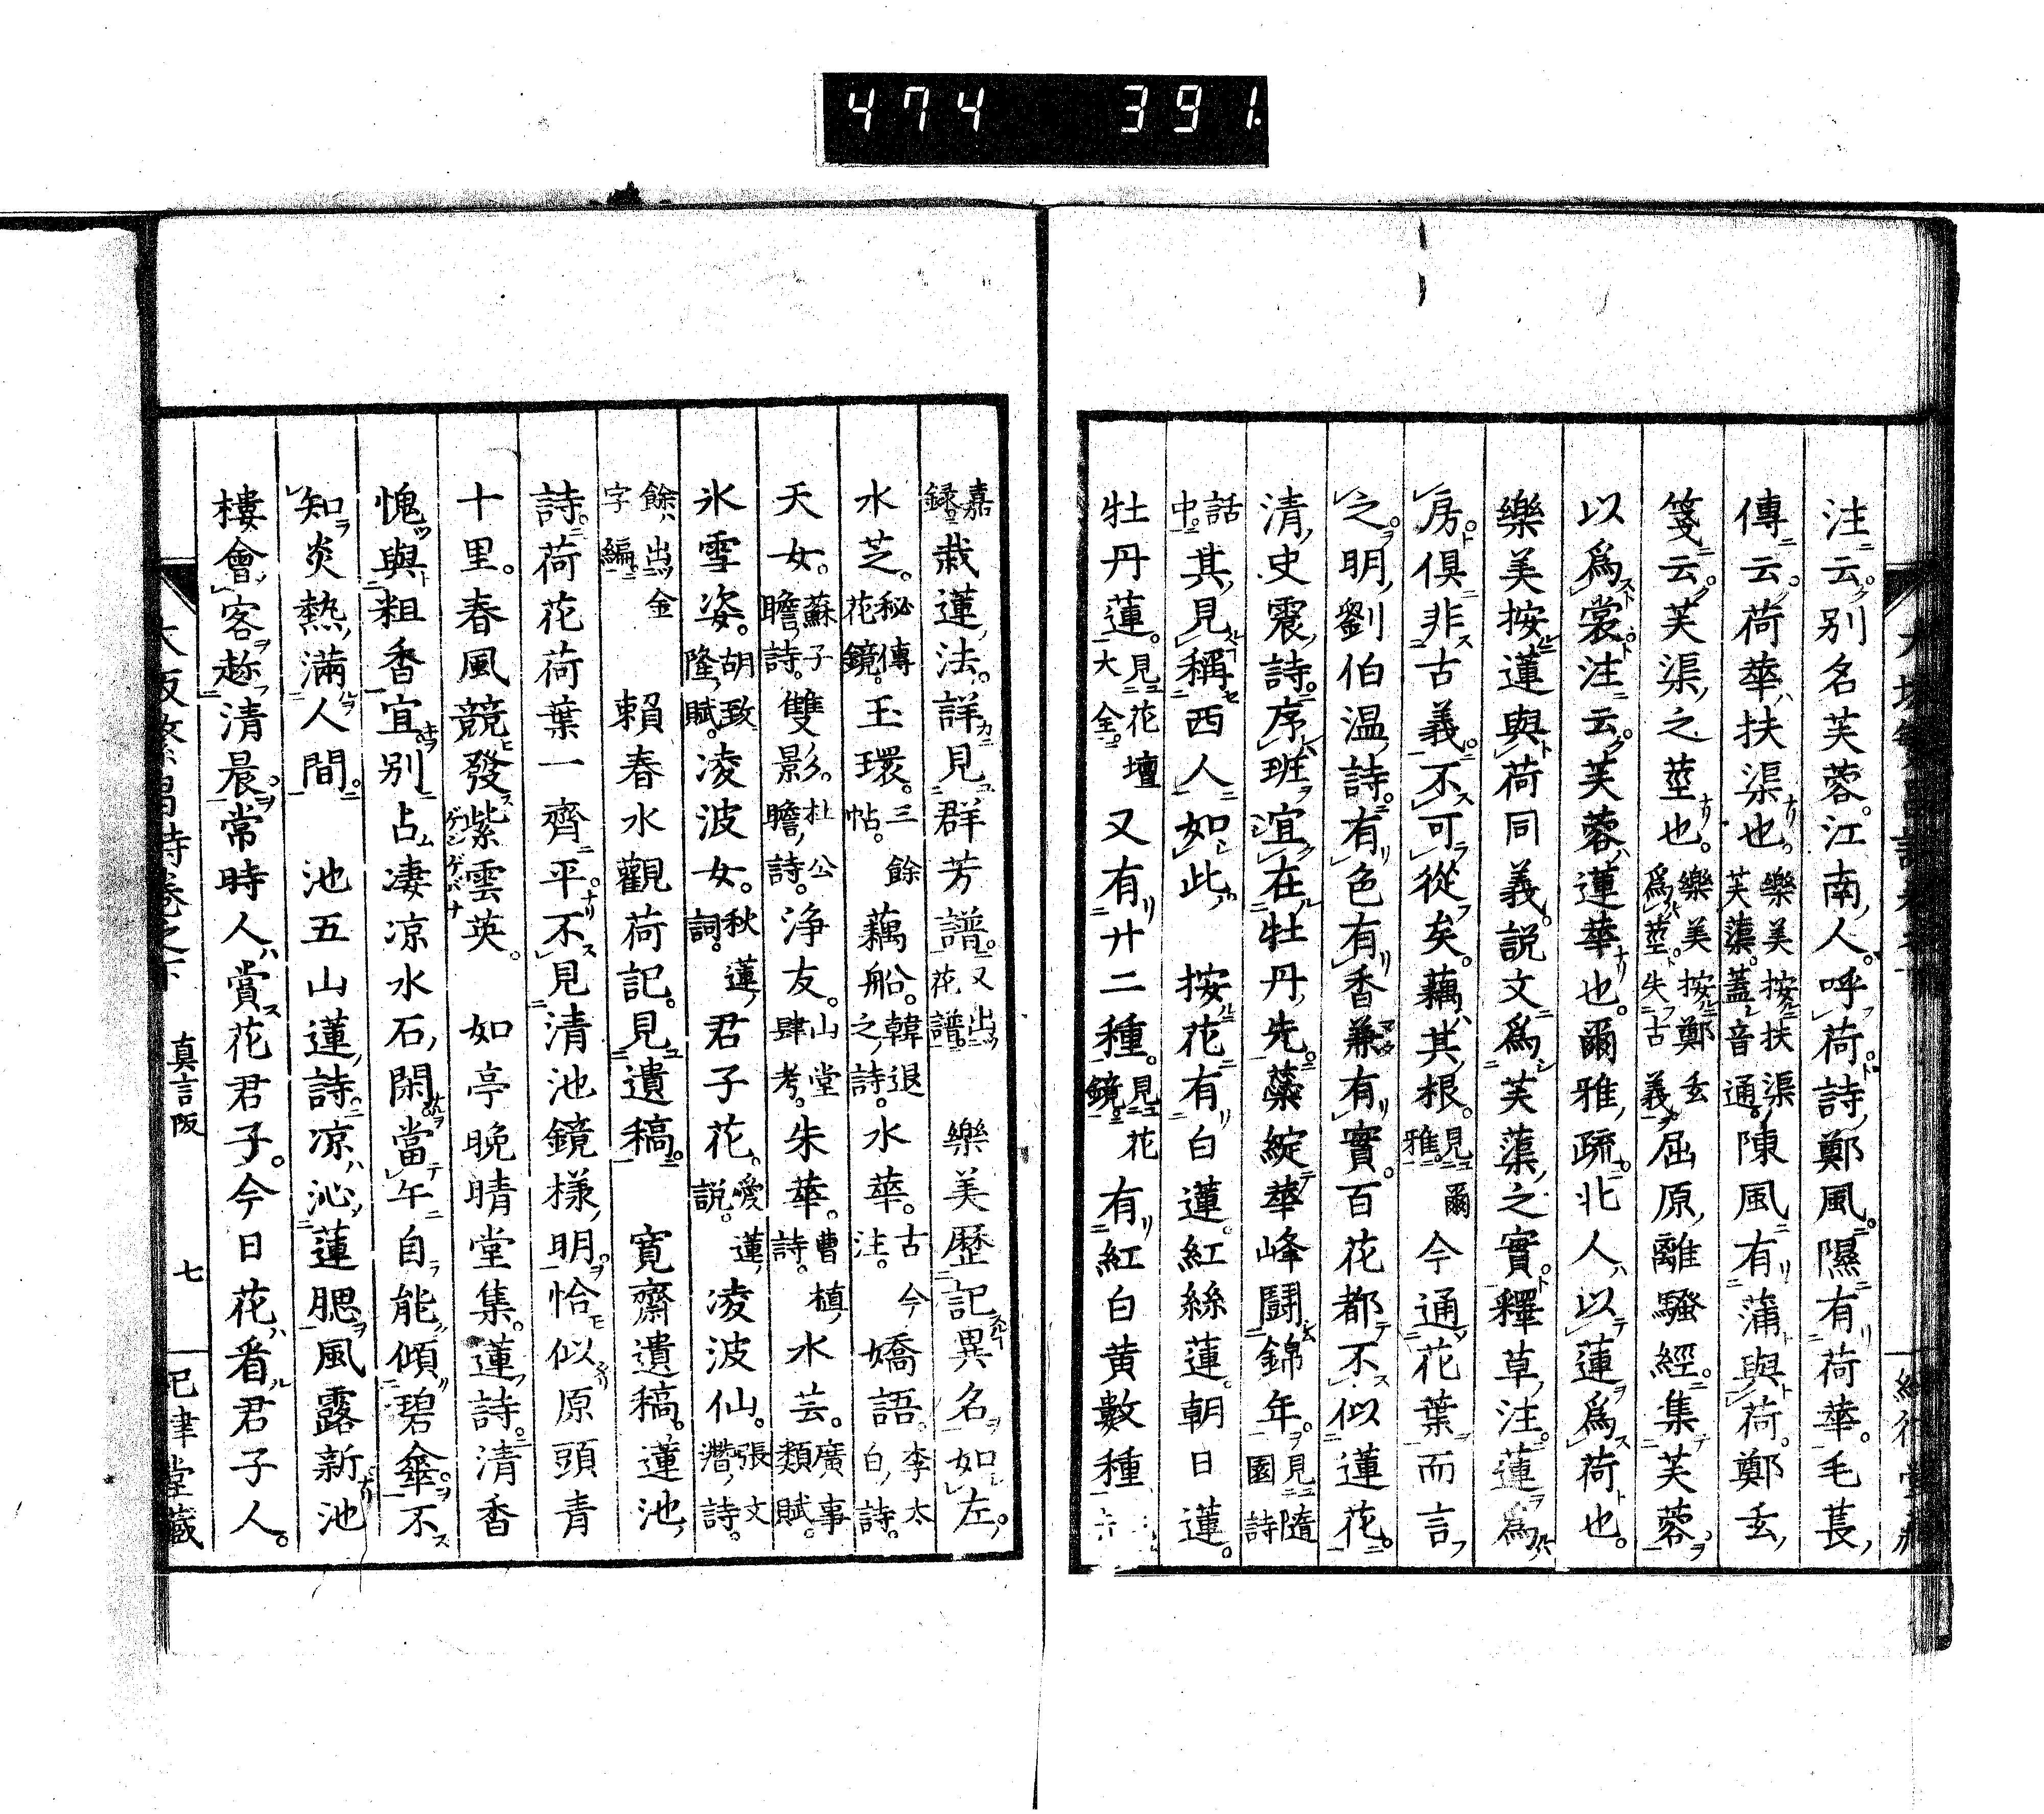 474 391.
注云。別名芙蓉。江南人。呼荷。詩鄭風。隰有荷華。毛萇
傳云。荷華扶渠也。樂美按扶渠芙蕖。蓋音通。陳風有蒲與荷。鄭玄
箋云。芙渠之莖也。樂美按鄭玄為莖。失古義。屈原離騷經。集芙蓉
以爲裳。注云。芙蓉蓮華也。爾雅疏。北人以蓮爲荷也。
樂美按蓮與荷同義。説文爲芙蕖之實。釋草注。蓮爲
房。俱非古義。不可從矣。藕其根。見爾雅。今通花葉而言
之。明劉伯温詩。有色有香兼有實。百花都不似蓮花。
清史震詩。序班宜在牡丹先。藥綻華峰鬪錦年。見隨園詩
話中。其見稱西人如此。 按花有白蓮。紅絲蓮。朝日蓮。
牡丹蓮。見花壇大全。又有廿二種。見花鏡。有紅白黄數種
嘉録。栽蓮法。詳見群芳譜。又出花譜。 樂美歴記異名如左。
水芝。秘傳花鏡。玉環。三餘帖。藕船。韓退之詩。水華。古今注。嬌語。李太白詩。
天女。蘇子瞻詩。雙影。杜公瞻詩。浄友。山堂肆考。朱華。曹植詩。水芸。廣事類賦。
氷雪姿。胡致隆賦。凌波女。秋蓮詞。君子花。愛蓮説。凌波仙。張文潛詩。
餘出金字編。 賴春水觀荷記。見遺稿。 寛齋遺稿。蓮池
詩。荷花荷葉一齊平。不見清池鏡様明。恰似原頭青
十里。春風競發紫雲英。ゲンゲバナ 如亭晩晴堂集。蓮詩。清香
愧與粗香宜別占凄凉水石閑。當午自能傾碧傘。不
知炎熱滿人間。 池五山蓮詩。凉沁蓮腮風露新。池
樓會客趂清晨。常時人賞花君子。今日花看君子人。
大阪繁昌詩巻之下 真言阪 七